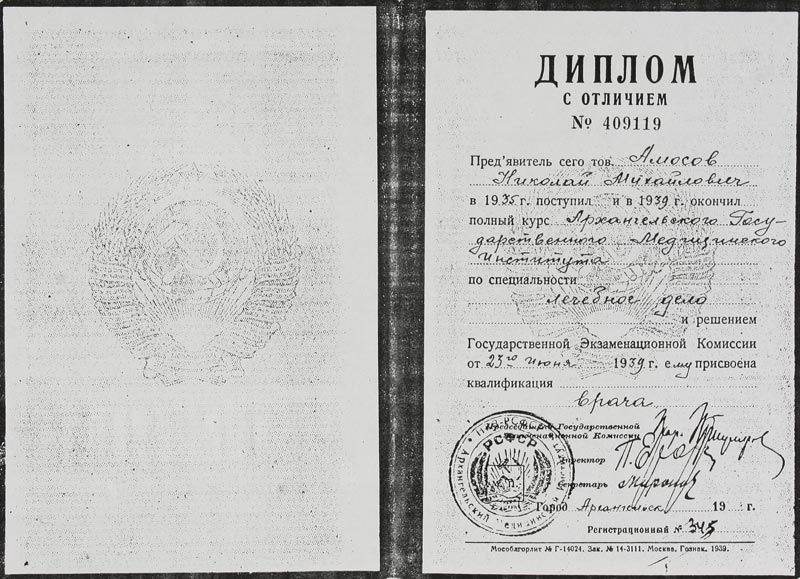 ДИПЛОМ
С ОТЛИЧИЕМ
№ 409119
Пред'явитель сего тов. Амосов
Николай Михайлович
в 1935 г. поступил и в 1939 г. окончил
полный курс Архангельского Госу-
дарственного Медицинского
Института
по специальности
лечебное дело
и решением
Государственной Экзаменационной Комиссии
от 23го июня 1939 г. ему присвоена
квалификация
врача
Председатель Государственной
Экзаменационной Комиссии
Директор
Секретарь
Город Архангельск 19 г.
Регистрационный № 345
РСФСР
Архангельский Медицинский
Мособлгорлит № Г-14024. Зак. № 14-3111. Москва. Гознак. 1939.